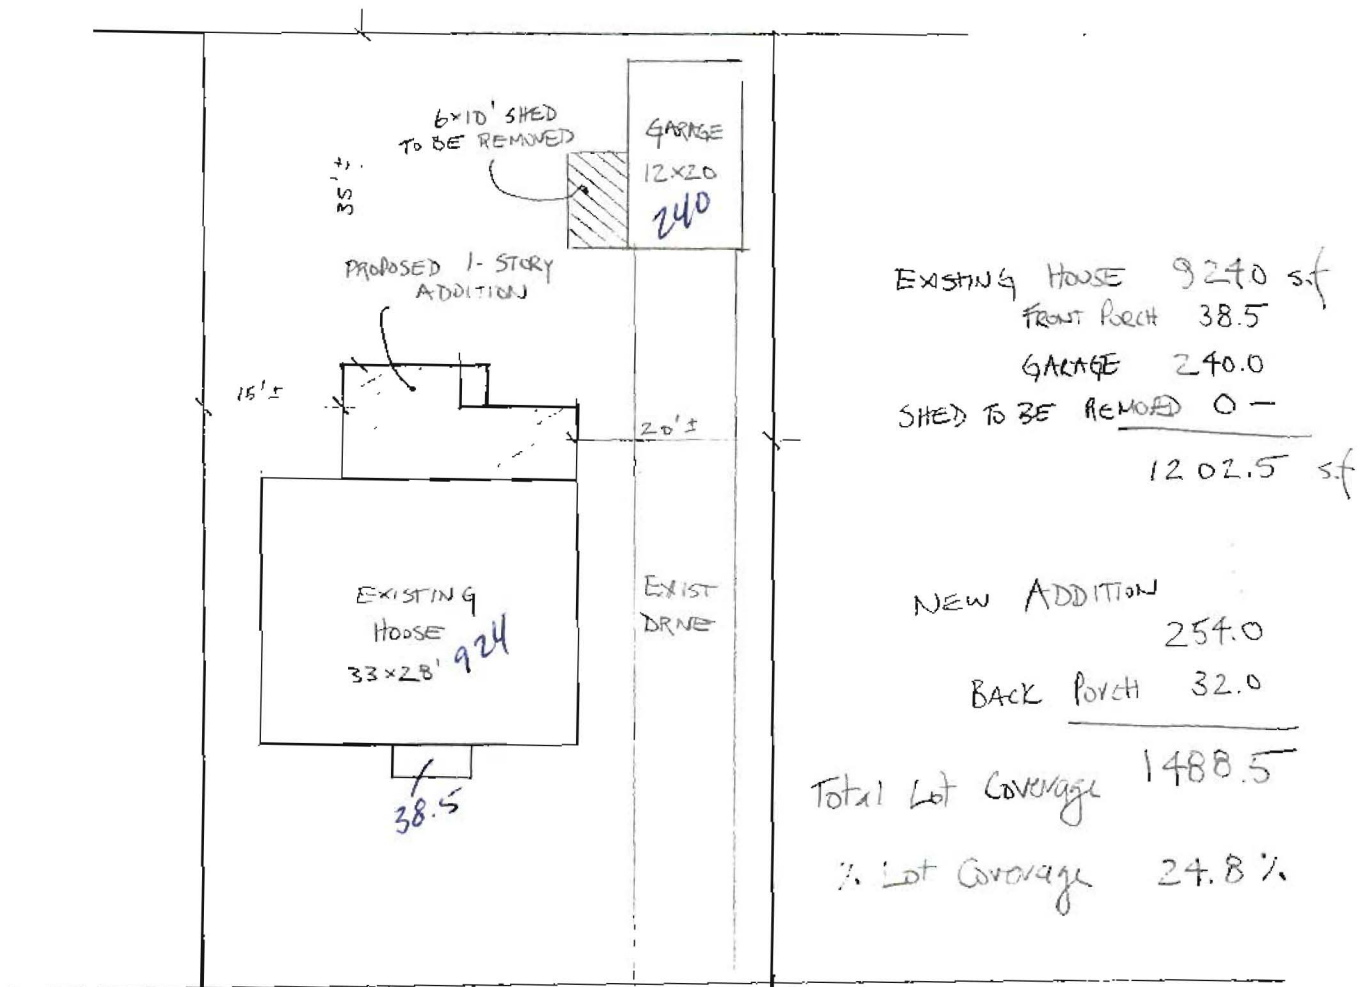 6x10' SHED
TO BE REMOVED
GARAGE
12x20
240
35'±.
PROPOSED 1-STORY
ADDITION
15'±
20'±
EXISTING
HOUSE
33x28' 924
EXIST
DRIVE
38.5
EXISTING HOUSE 924.0 s.f
FRONT PORCH 38.5
GARAGE 240.0
SHED TO BE REMOED 0 —
1202.5 s.f
NEW ADDITION
254.0
BACK PORCH 32.0
Total Lot Coverage 1488.5
% Lot Coverage 24.8 %